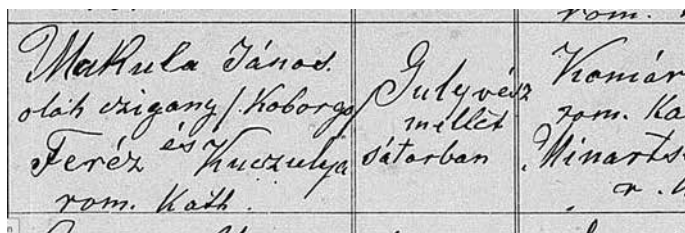 rom.
Makula János.
oláh czigany /Koborgo/
Feréz és Kuczulya
rom. Kath.
Gulyvész
mellet
sátorban
Komár
rom. Ka
Minarts
r.